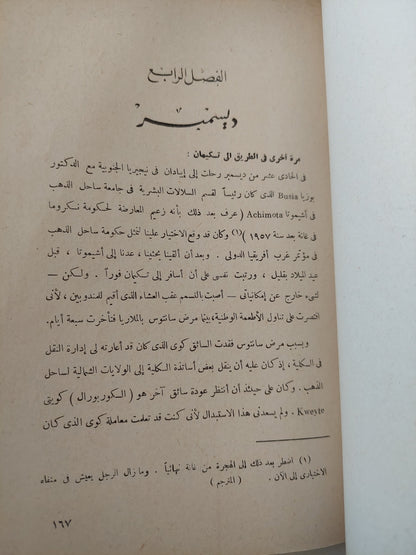 الفصل الرابع
ديسمبر
مرة أخرى فى الطريق الى تسكيمان :
فى الحادى عشر من ديسمبر رحلت إلى إيبادان فى نيجيريا الجنوبية مع الدكتور
بوزيا Busia الذى كان رئيساً لقسم السلالات البشرية فى جامعة ساحل الذهب
فى أشيموتا Achimota ( عرف بعد ذلك بأنه زعيم المعارضة لحكومة نكروما
فى غانة بعد سنة ١٩٥٧ )(١) وكان قد وقع الاختيار علينا لنمثل حكومة ساحل الذهب
فى مؤتمر غرب أفريقيا الدولى . وبعد أن ألقينا بحثينا ، عدنا إلى أشيموتا ، قبل
عيد الميلاد بقليل ، ورتبت نفسى على أن أسافر إلى تسكيمان فوراً . ولكن —
لشىء خارج عن إمكانياتى — أصبت بالتسمم عقب العشاء الذى أقيم للمندوبين ، لأنى
اقتصرت على تناول الأطعمة الوطنية ، بينما مرض سانتوس بالملاريا فتأخرت سبعة أيام .
وبسبب مرض سانتوس فقدت السائق كوى الذى كان قد أعارته لى إدارة النقل
فى الكلية ، إذ كان عليه أن ينقل بعض أساتذة الكلية إلى الولايات الشمالية لساحل
الذهب . وكان على حينئذ أن أنتظر عودة سائق آخر هو ( السكوربورال ) كويتى
Kweyte . ولم يسعدنى هذا الاستبدال لأنى كنت قد تعلمت معاملة كوى الذى كان
(١) اضطر بعد ذلك إلى الهجرة من غانة نهائياً . وما زال الرجل يعيش فى منفاه
الاختيارى إلى الآن . ( المترجم )
١٦٧